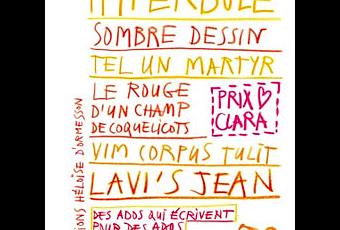 HYPERBULE
SOMBRE DESSIN
TEL UN MARTYR
LE ROUGE
D'UN CHAMP
DE COQUELICOTS
PRIX
CLARA
VIM CORPUS TULIT
LAVI'S JEAN
DES ADOS QUI ÉCRIVENT
POUR DES ADOS
IONS HÉLOÏSE D'ORMESSON